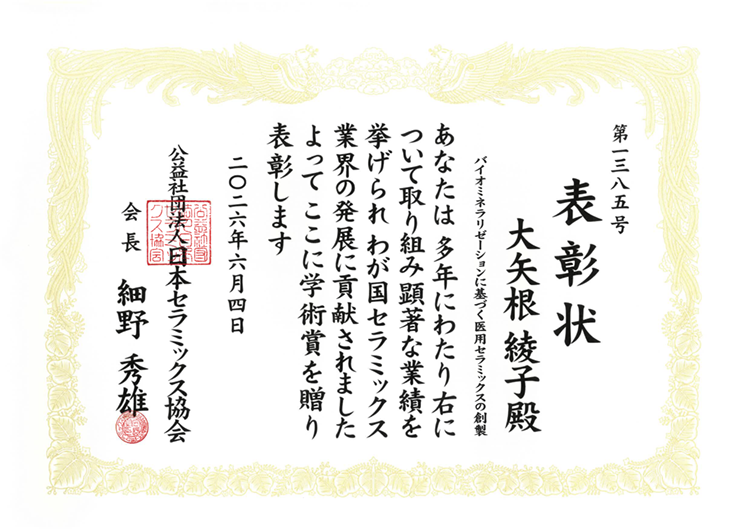 第一三八五号
表彰状
大矢根 綾子殿
バイオミネラリゼーションに基づく医用セラミックスの創製
あなたは 多年にわたり右に
ついて取り組み 顕著な業績を
挙げられ わが国セラミックス
業界の発展に貢献されました
よって ここに学術賞を贈り
表彰します
二〇二六年六月四日
公益社団法人日本セラミックス協会
会長 細野 秀雄